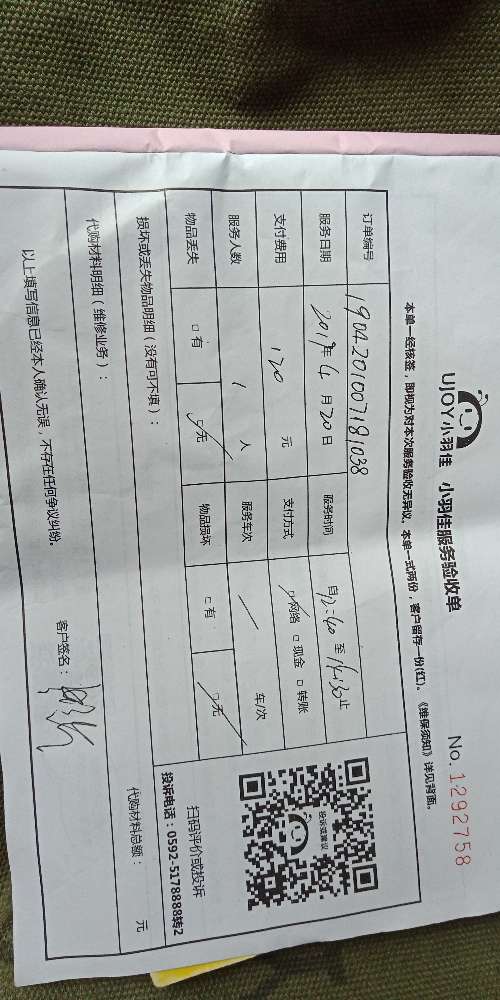 UJOY小羽佳 小羽佳服务验收单 No.1292758
本单一经核签，即视为对本次服务验收无异议。本单一式两份，客户留存一份(红)。《维保须知》详见背面。
订单编号 1904201007181038
服务日期 2019年4月20日 服务时间 自12:40至16:30止
支付费用 120 元 支付方式 □网络 □现金 □转账
服务人数 1 人 服务车次 / 车/次
物品丢失 □有 □无 物品损坏 □有 □无
投诉或建议
扫码评价或投诉
投诉电话：0592-5178888转2
损坏或丢失物品明细（没有可不填）：
代购材料明细（维修业务）： 代购材料总额： 元
以上填写信息已经本人确认无误，不存在任何争议纠纷。 客户签名：